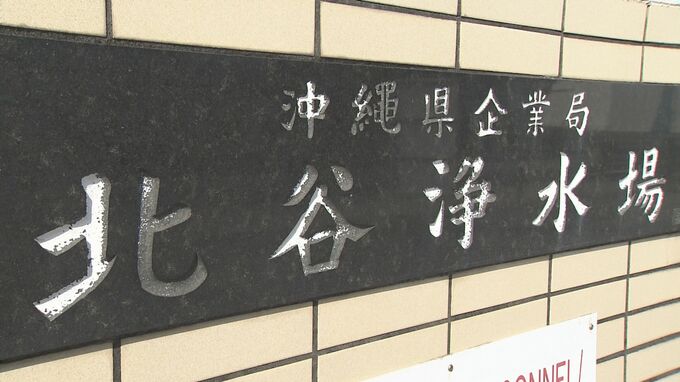 沖縄県企業局
北谷浄水場